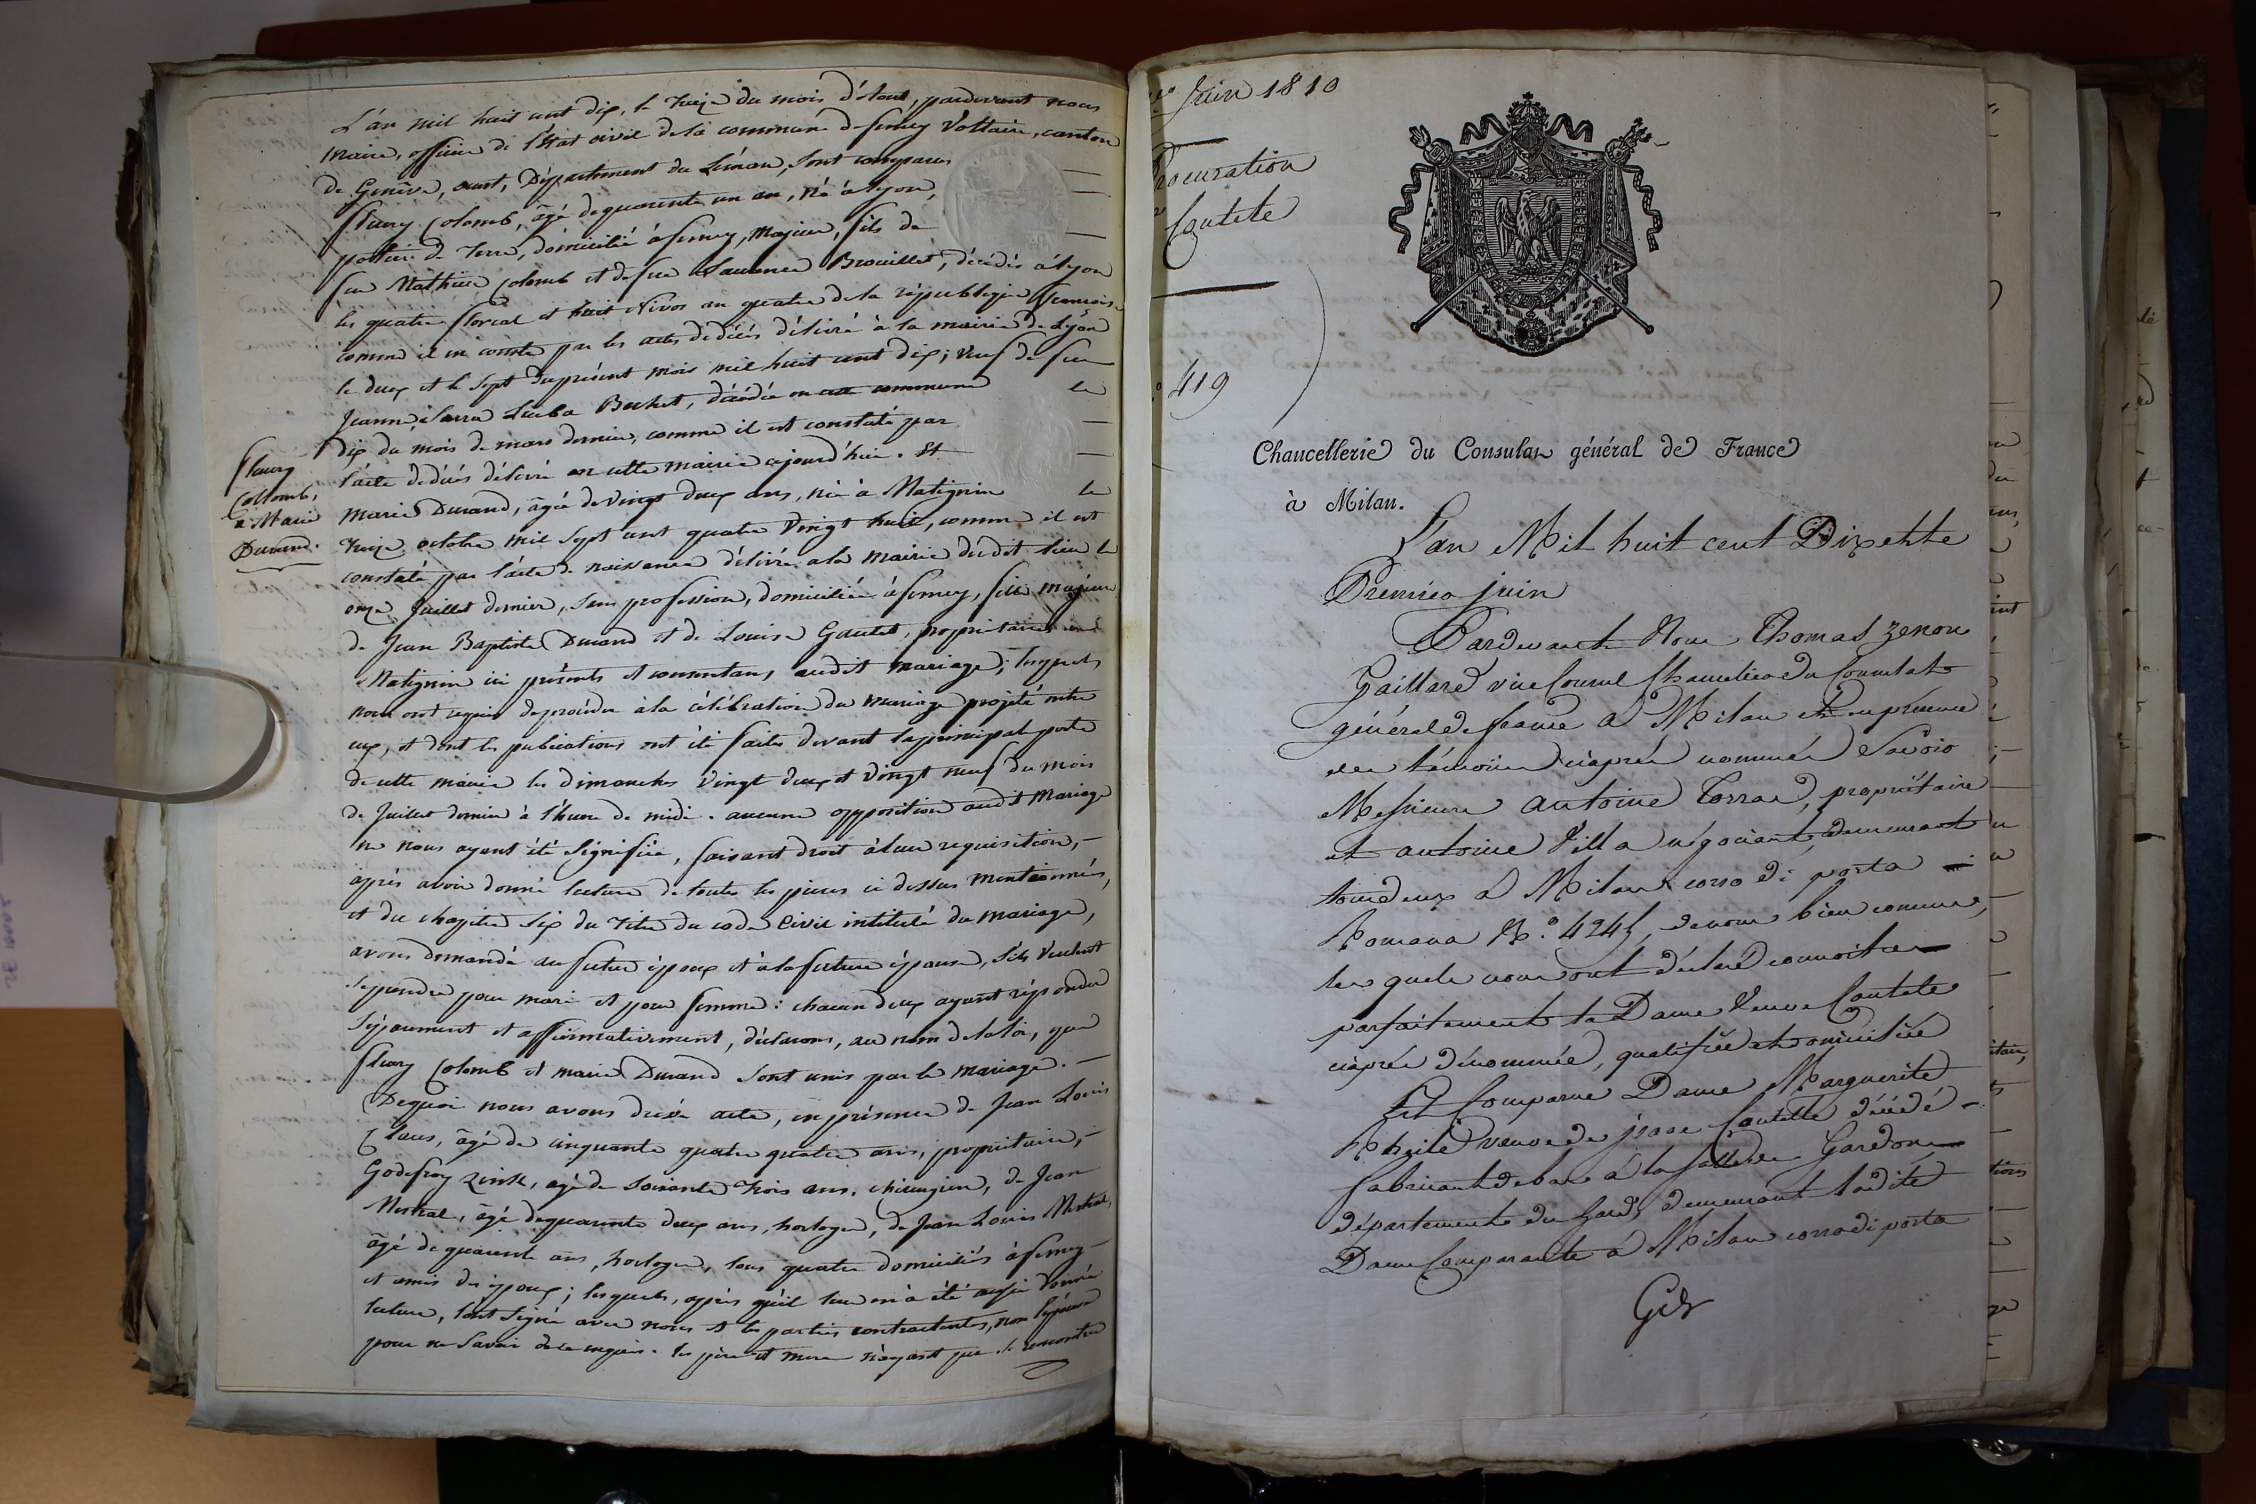 L'an mil huit cent dix, le treize du mois d'Aout, pardevant nous
Maire, officier de l'Etat civil de la commune de ferney Voltaire, canton
de Genève, ouest, Département du Léman, sont comparus
fleury Colomb, âgé de quarante un an, né à Lyon,
pottier de terre, domicilié à ferney, Majeur, fils de
feu Mathieu Colomb et de feue Laurence Brouillet, décédés à Lyon
les quatre floréal et huit Nivos an quatre de la république françoise
comme il en conste par les actes de décès délivré à la mairie de Lyon
le deux et le sept du présent mois mil huit cent dix; veuf de feue
Jeanne Sara Bechet, décédée en cette commune le
dix du mois de mars dernier, comme il est constaté par
l'acte de décès délivré en cette mairie aujourd'hui. Et
marie Durand, âgée de vingt deux ans, née à Matignin le
treize octobre mil sept cent quatre vingt huit, comme il est
constaté par l'acte de naissance délivré a la mairie dudit lieu le
onze Juillet dernier, sans profession, domiciliée à ferney, fille majeure
de Jean Baptiste Durand et de Louise Gautet, propriétaires
Matignin ici présents et consentans audit mariage; lesquels
nous ont requis de procéder à la célébration du mariage projetté entre
eux, et dont les publications ont été faites devant la principal porte
de cette mairie les dimanches vingt deux et vingt neuf du mois
de Juillet dernier à l'heure de midi. aucune opposition audit Mariage
ne nous ayant été signifiée, faisant droit à leur requisition,
après avoir donné lecture de toutes les pièces ci dessus mentionnées,
et du chapitre six du titre du code Civil intitulé du mariage,
avons demandé au futur époux et à la future épouse, s'ils veulent
se prendre pour mari et pour femme: chacun d'eux ayant répondu
séparement et affirmativement, déclarons, au nom de la loi, que
fleury Colomb et marie Durand sont unis par le mariage.
Dequoi nous avons dressé acte, en présence de Jean Louis
âgé de cinquante quatre ans, propriétaire,
Godefroy Zinck, âgé de soixante trois ans, chirurgien, de Jean
Mestral, âgé de quarante deux ans, horloger, de Jean Louis Mestral,
âgé de quarente ans, horloger, tous quatre domiciliés à ferney
et amis des époux; lesquels, après qu'il leur en à été aussi donnée
lecture, l'ont signé avec nous et les parties contractantes, non l'épouse
pour ne savoir de ce requis. les père et mere n'ayant pu se rencontrer
fleury
Collomb,
à Marie
Durand.
Juin 1810
Procuration
Coutelle
419
Chancellerie du Consulat général de France
à Milan.
L'an Mil huit cent Dix et le
Premier juin
Pardevant Nous Thomas Zenon
Gaillard vice Consul Chancelier du Consulat
général de france à Milan et en présence
des témoins ciaprès nommés Savoir
Messieurs antoine Torran, propriétaire
et antoine Villa négociant, demeurant
tous deux à Milan corso di porta
Romana N.º 4245, de nous bien connus,
les quels nous ont déclaré connoitre
parfaitement la Dame Veuve Coutelle
ciaprès dénommée, qualifiée et domiciliée
Est Comparue Dame Marguerite
veuve de isaac Coutelle décédé
fabricant de bas à la salle de Gardon
département du Gard, demeurant ladite
Dame Comparante à Milan corso di porta